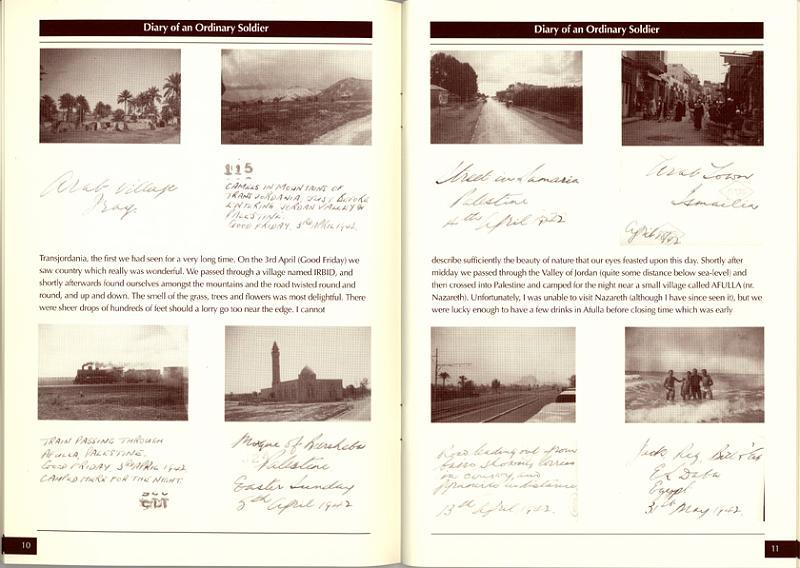 Diary of an Ordinary Soldier
Arab Village
Iraq.
115
CAMELS IN MOUNTAINS OF
TRANSJORDANIA, JUST BEFORE
ENTERING JORDAN VALLEY &
PALESTINE.
GOOD FRIDAY. 3RD APRIL 1942.
Transjordania, the first we had seen for a very long time. On the 3rd April (Good Friday) we
saw country which really was wonderful. We passed through a village named IRBID, and
shortly afterwards found ourselves amongst the mountains and the road twisted round and
round, and up and down. The smell of the grass, trees and flowers was most delightful. There
were sheer drops of hundreds of feet should a lorry go too near the edge. I cannot
TRAIN PASSING THROUGH
AFULLA, PALESTINE.
GOOD FRIDAY 3RD APRIL 1942
CAMPED HERE FOR THE NIGHT.
Mosque of Beersheba
Palestine
Easter Sunday
5th April 1942
10
Diary of an Ordinary Soldier
Street in Samaria
Palestine
4th April 1942
Arab Town
Ismailia
describe sufficiently the beauty of nature that our eyes feasted upon this day. Shortly after
midday we passed through the Valley of Jordan (quite some distance below sea-level) and
then crossed into Palestine and camped for the night near a small village called AFULLA (nr.
Nazareth). Unfortunately, I was unable to visit Nazareth (although I have since seen it), but we
were lucky enough to have a few drinks in Afulla before closing time which was early
leading out from
showing
country and
in distance
13th April 1942.
Jack, Reg, Bill &
El Daba
Egypt
31st May 1942.
11